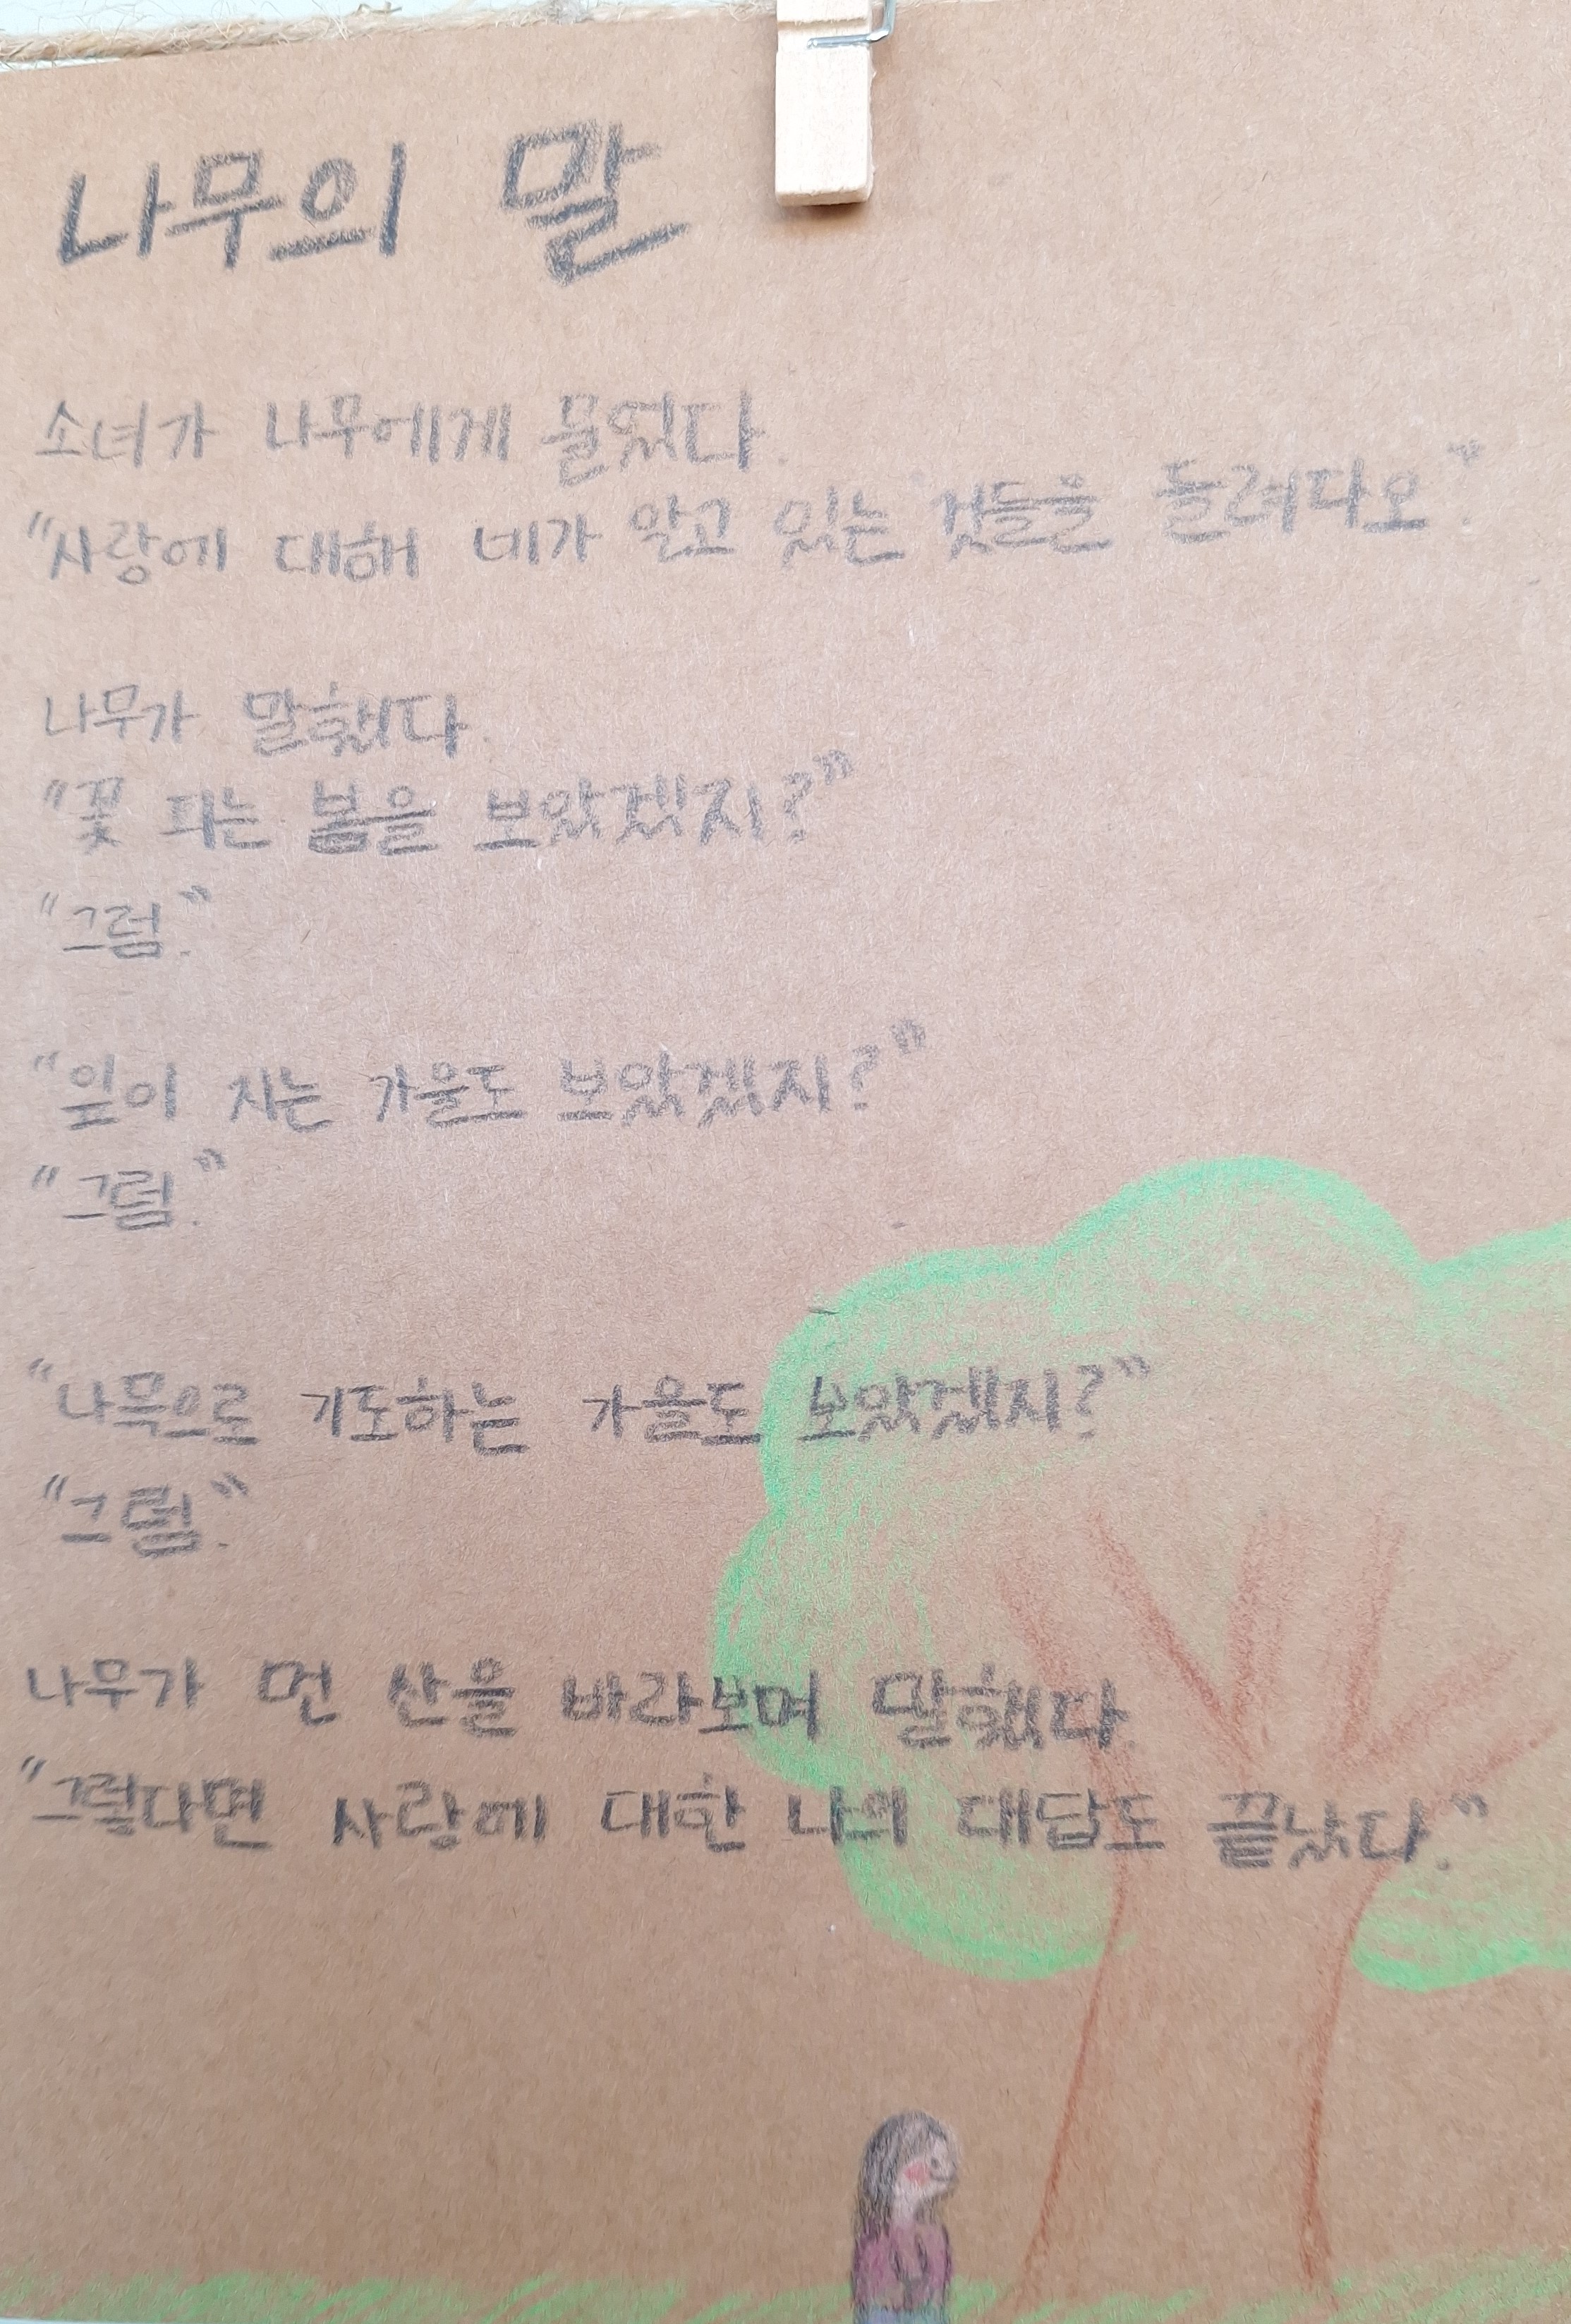 나무의 말
소녀가 나무에게 물었다.
"사랑에 대해 네가 알고 있는 것들을 들려다오."
나무가 말했다.
"꽃 피는 봄을 보았겠지?"
"그럼."
"잎이 지는 가을도 보았겠지?"
"그럼."
"나목으로 기도하는 가을도 보았겠지?"
"그럼."
나무가 먼 산을 바라보며 말했다.
"그렇다면 사랑에 대한 나의 대답도 끝났다."